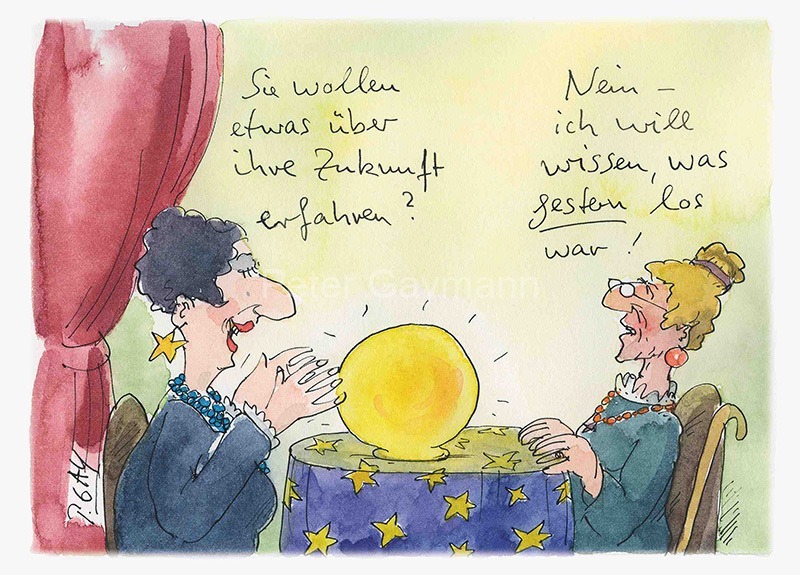 Sie wollen
etwas über
ihre Zukunft
erfahren?
Nein –
ich will
wissen, was
gestern los
war!
Peter Gaymann
P. GAY